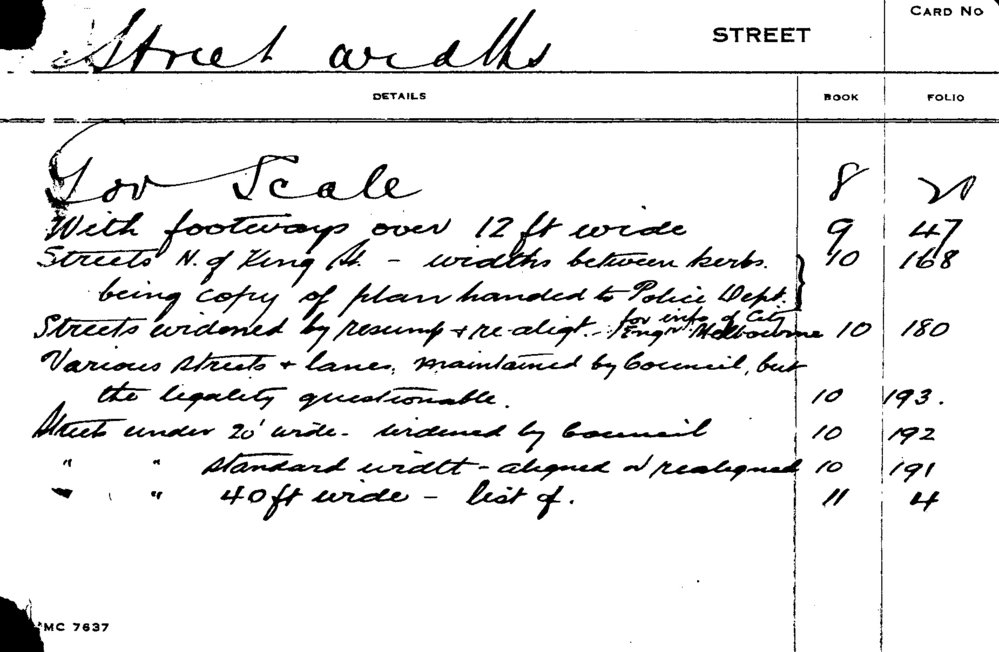 Street widths STREET CARD NO
DETAILS BOOK FOLIO
For Scale 8 20
With footways over 12 ft wide 9 47
Streets N. of King St. - widths between kerbs. 10 168
being copy of plan handed to Police Dept.
for info of City
Streets widened by resump & re-aligt. - Engr. Melbourne 10 180
Various streets & lanes, maintained by Council, but
the legality questionable. 10 193.
Streets under 20' wide - widened by Council 10 192
" " standard width - aligned or realigned 10 191
" " 40 ft wide - list of. 11 4
MC 7637